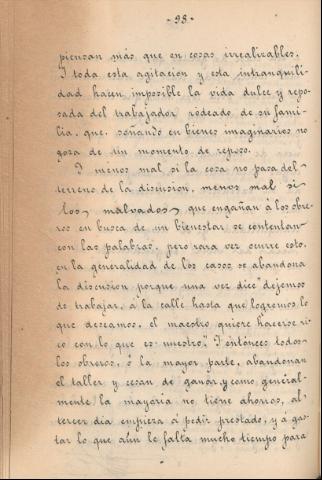 - 98 -
piensan más que en cosas irrealizables.
Y toda esta agitacion y esta intranquili-
dad hacen imposible la vida dulce y repo-
sada del trabajador rodeado de su fami-
lia, que, soñando en bienes imaginarios no
goza de un momento de reposo.
Y menos mal si la cosa no pasa del
terreno de la discusion, menos mal si
los malvados, que engañan á los obre-
ros en busca de un bienestar se contentan
con las palabras, pero rara vez ocurre esto,
en la generalidad de los casos se abandona
la discusion porque una vez dice "dejemos
de trabajar, á la calle hasta que logremos lo
que deseamos, el maestro quiere hacerse ri-
co con lo que es nuestro". Y entónces todos
los obreros, ó la mayor parte, abandonan
el taller y cesan de ganar, y como general-
mente la mayoría no tiene ahorros, al
tercer dia empieza á pedir prestado, y á gas-
tar lo que aún le falta mucho tiempo para